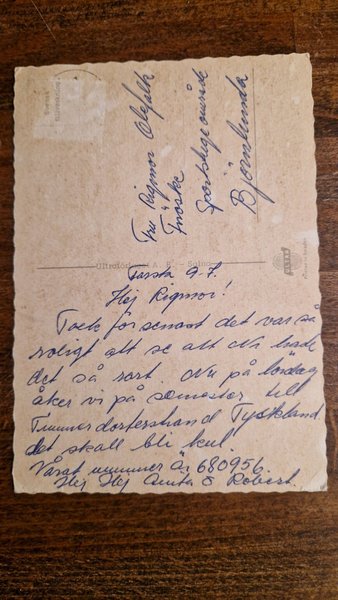 Fru Rigmor Olofalk
Fröske
Sportstugeområde
Björnlunda
Ultraförlaget A. B. - Solna
ULTRA
Farsta 9.7.
Hej Rigmor!
Tack för senast det var så
roligt att se att Ni hade
det så rart. Nu på lördag
åker vi på semester till
Timmerdorferstrand Tyskland
det skall bli kul.
Vårat nummer är 680956.
Hej Hej Anita & Robert.